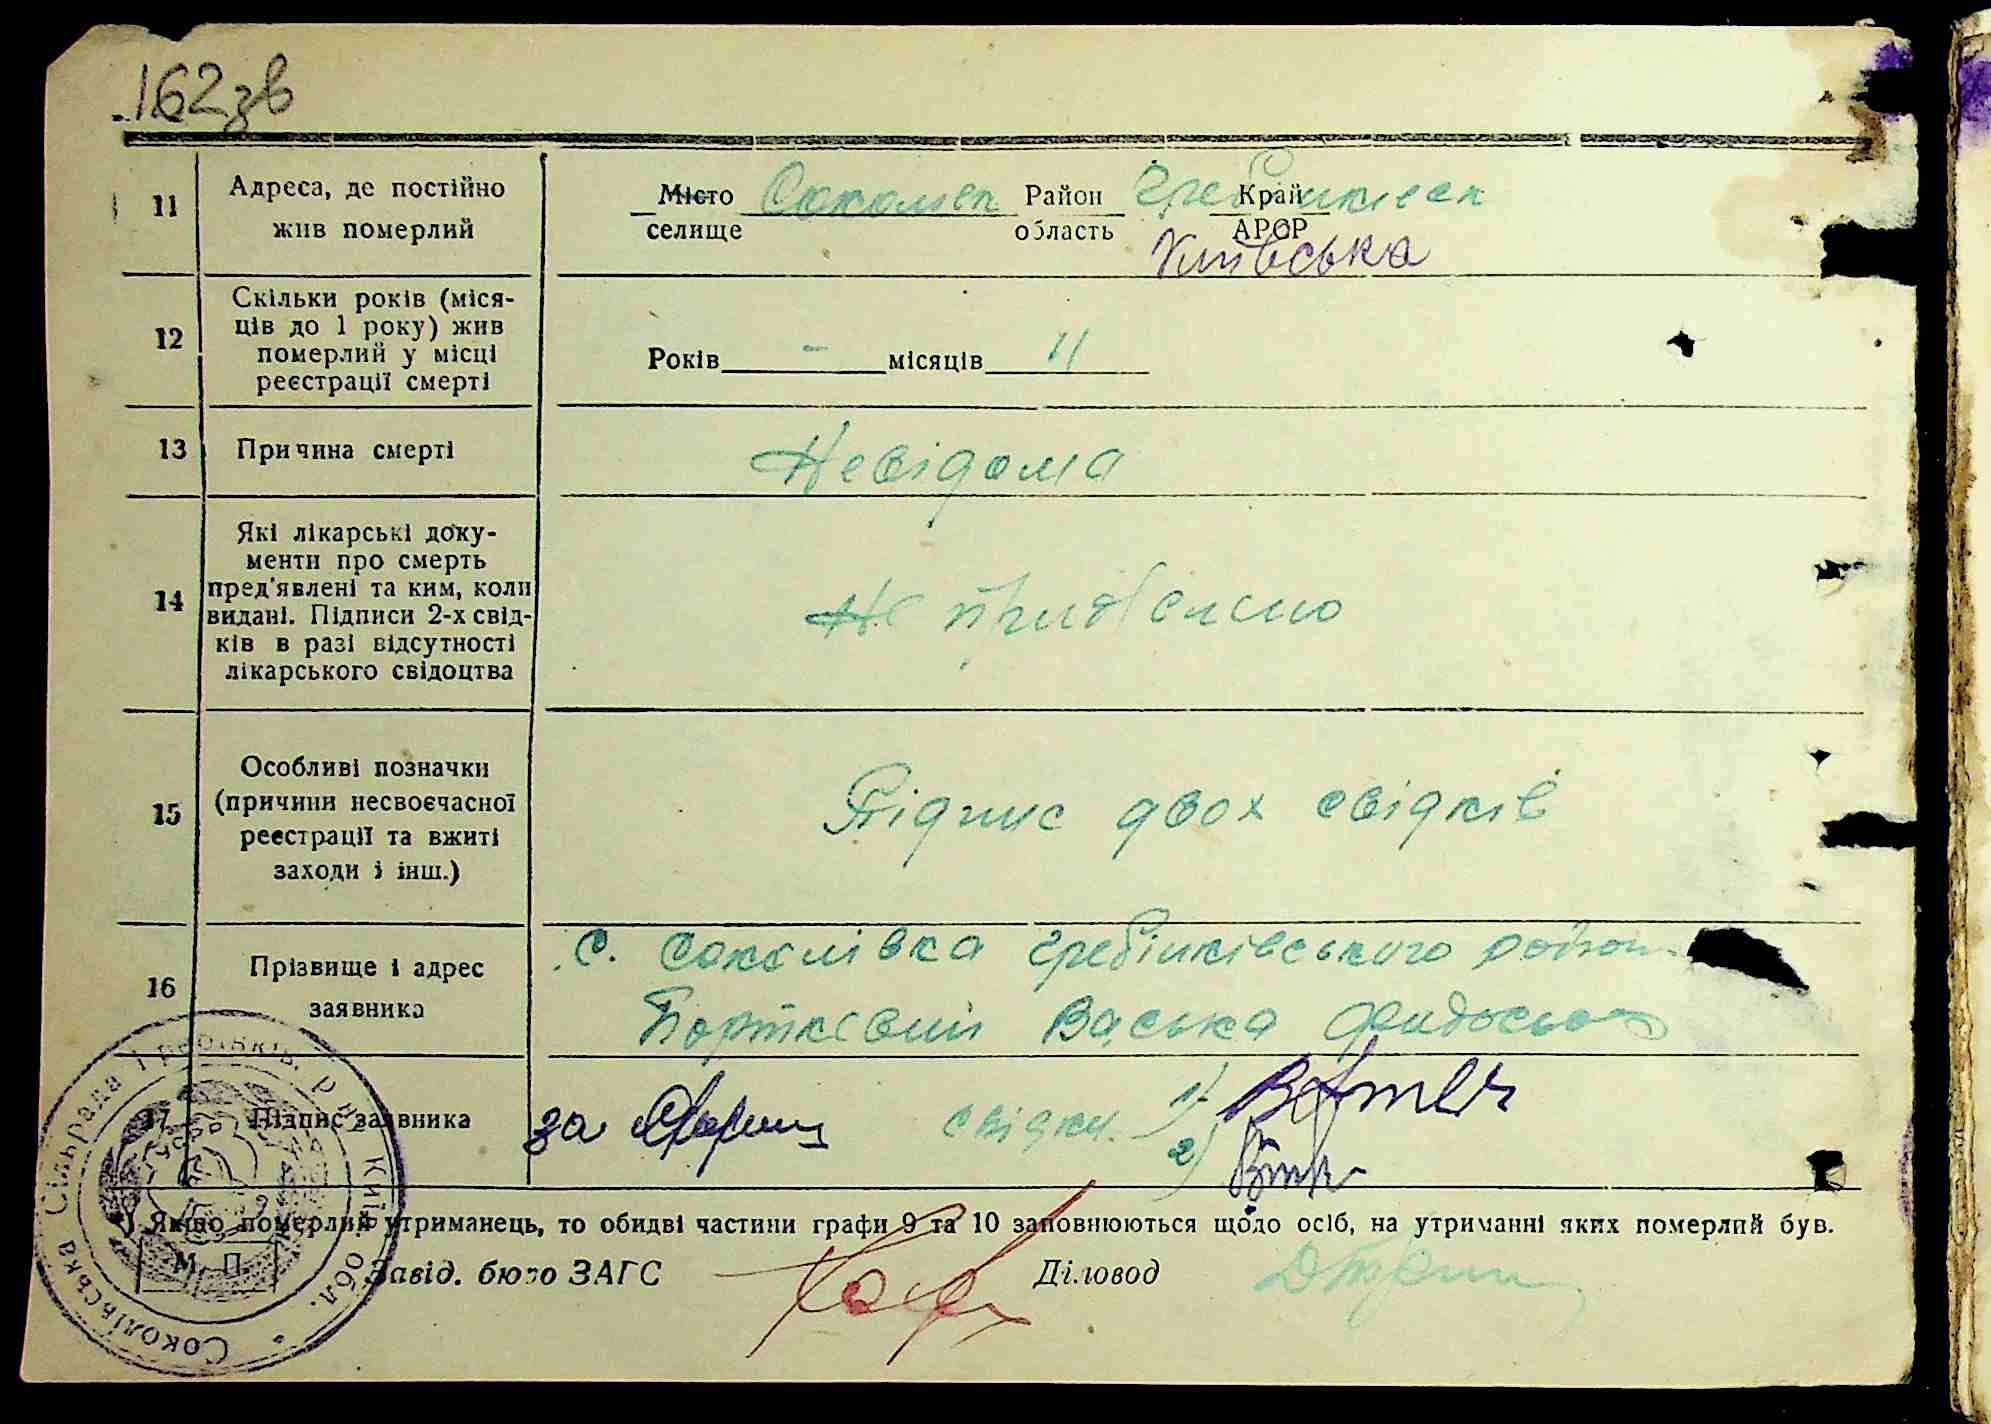 162зв
11 Адреса, де постійно жив померлий
Місто Район Край
селище область АРСР
Київська
12 Скільки років (міся-
ців до 1 року) жив
померлий у місці
реєстрації смерті
Років - місяців 11
13 Причина смерті Невідома
14 Які лікарські доку-
менти про смерть
пред'явлені та ким, коли
видані. Підписи 2-х свід-
ків в разі відсутності
лікарського свідоцтва
Не
15 Особливі позначки
(причини несвоєчасної
реєстрації та вжиті
заходи і інш.)
Підпис двох свідків
16 Прізвище і адрес
заявника
с. Соколівка Гребінківського
Васька
17 Підпис заявника за свідки. 1) 2)
*) Якщо померлий утриманець, то обидві частини графи 9 та 10 заповнюються щодо осіб, на утриманні яких померлий був.
М. П. Завід. бюро ЗАГС Діловод
Соколівська Сільрада Гребінків. Р-ну Київ. обл.
УСРР